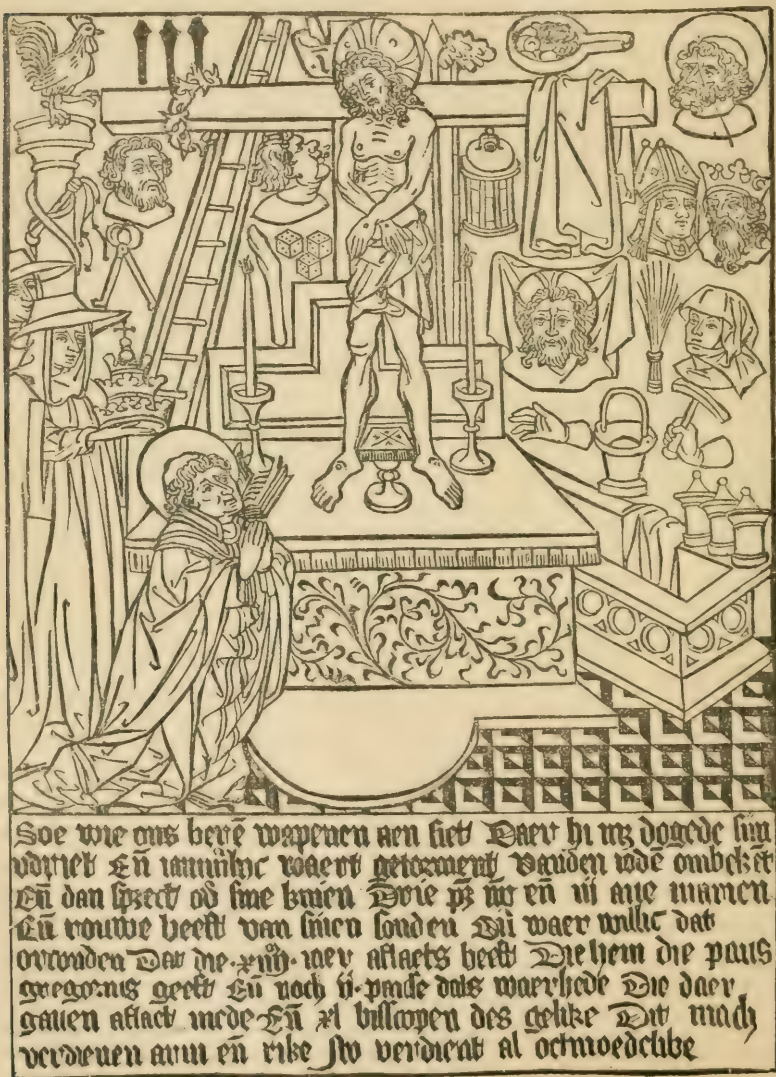 Soe wie ons herē wapenen aen siet Daer hi mz dogede sijn
vdriet Eñ iammerlijc waert getorment vanden iodē ombekēt
Eñ dan spreect op sine knien Drie pr nr eñ iij aue marien
Eñ rouwe heeft van sinen sonden waer willic dat
orconden Dat die .xiiijm. iaer aflaets heeft Die hem die paus
gregorius geeft Eñ noch ij. pause dats waerhede Die daer
gauen aflaet mede Eñ xl bisscopen des gelike Dit mach
verdienen arm eñ rike verdient al oetmoedelike